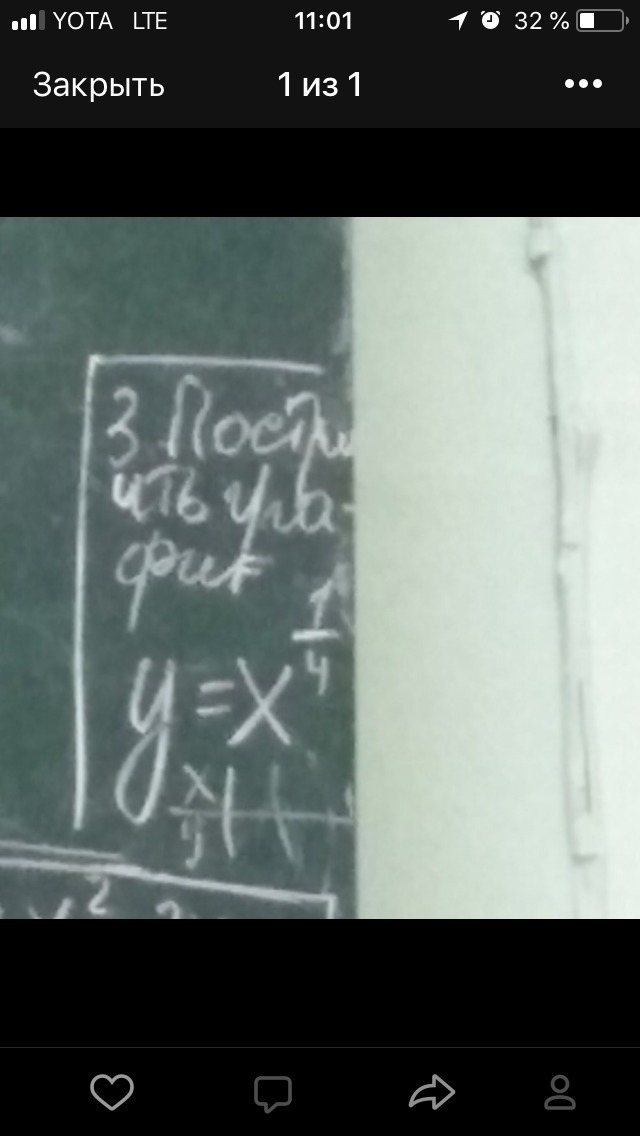 YOTA LTE 11:01 32 %
Закрыть 1 из 1
3 Постро
ить гра-
фик
y = x^{\frac{1}{4}}
x
y
x²